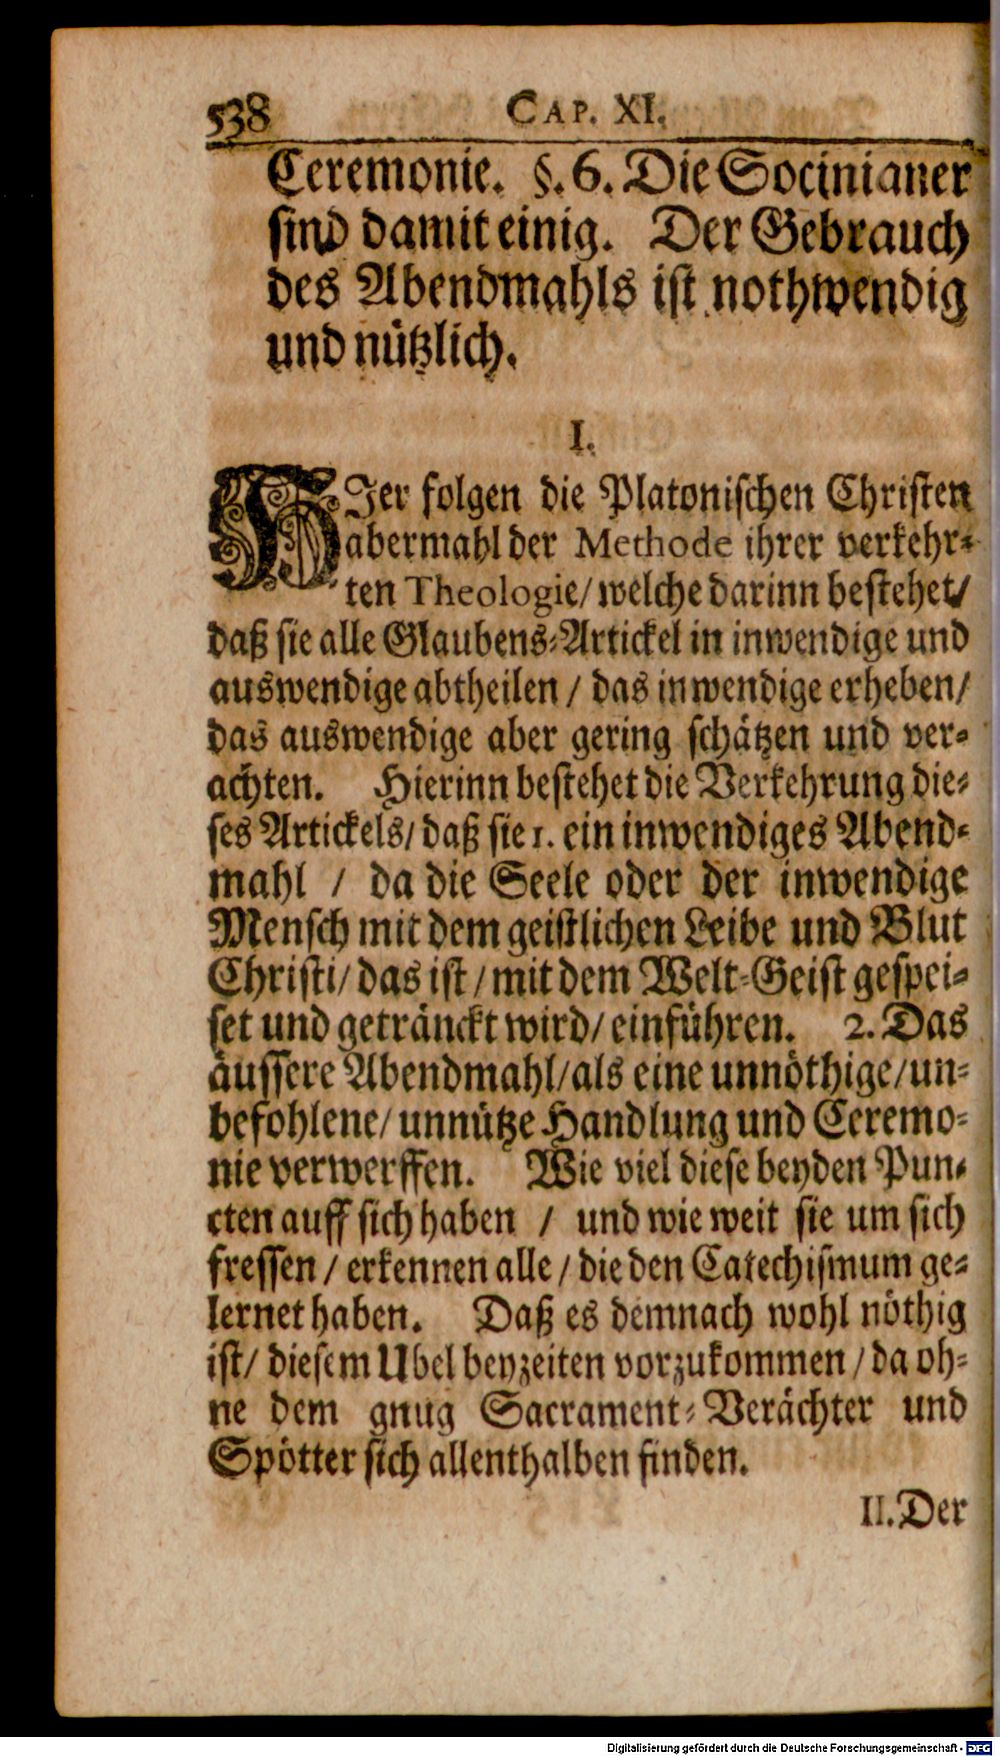 538 CAP. XI.
Ceremonie. §. 6. Die Socinianer
sind damit einig. Der Gebrauch
des Abendmahls ist nothwendig
und nützlich.
I.
HJer folgen die Platonischen Christen
abermahl der Methode ihrer verkehr-
ten Theologie/ welche darinn bestehet/
daß sie alle Glaubens-Artickel in inwendige und
auswendige abtheilen / das inwendige erheben/
das auswendige aber gering schätzen und ver-
achten. Hierinn bestehet die Verkehrung die-
ses Artickels/ daß sie 1. ein inwendiges Abend-
mahl / da die Seele oder der inwendige
Mensch mit dem geistlichen Leibe und Blut
Christi/ das ist / mit dem Welt-Geist gespei-
set und geträncket wird/ einführen. 2. Das
äussere Abendmahl/ als eine unnöthige/ un-
befohlene/ unnütze Handlung und Ceremo-
nie verwerffen. Wie viel diese beyden Pun-
cten auff sich haben / und wie weit sie um sich
fressen / erkennen alle / die den Catechismum ge-
lernet haben. Daß es demnach wohl nöthig
ist/ diesem Ubel beyzeiten vorzukommen / da oh-
ne dem gnug Sacrament-Verächter und
Spötter sich allenthalben finden.
II. Der
Digitalisierung gefördert durch die Deutsche Forschungsgemeinschaft - DFG